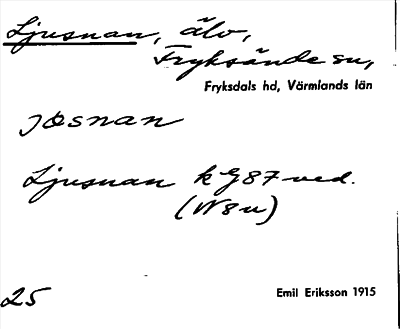 Ljusnan, älv,
Fryksände sn,
Fryksdals hd, Värmlands län
josnan
Ljusnan k G87 ved.
(N8u)
25
Emil Eriksson 1915